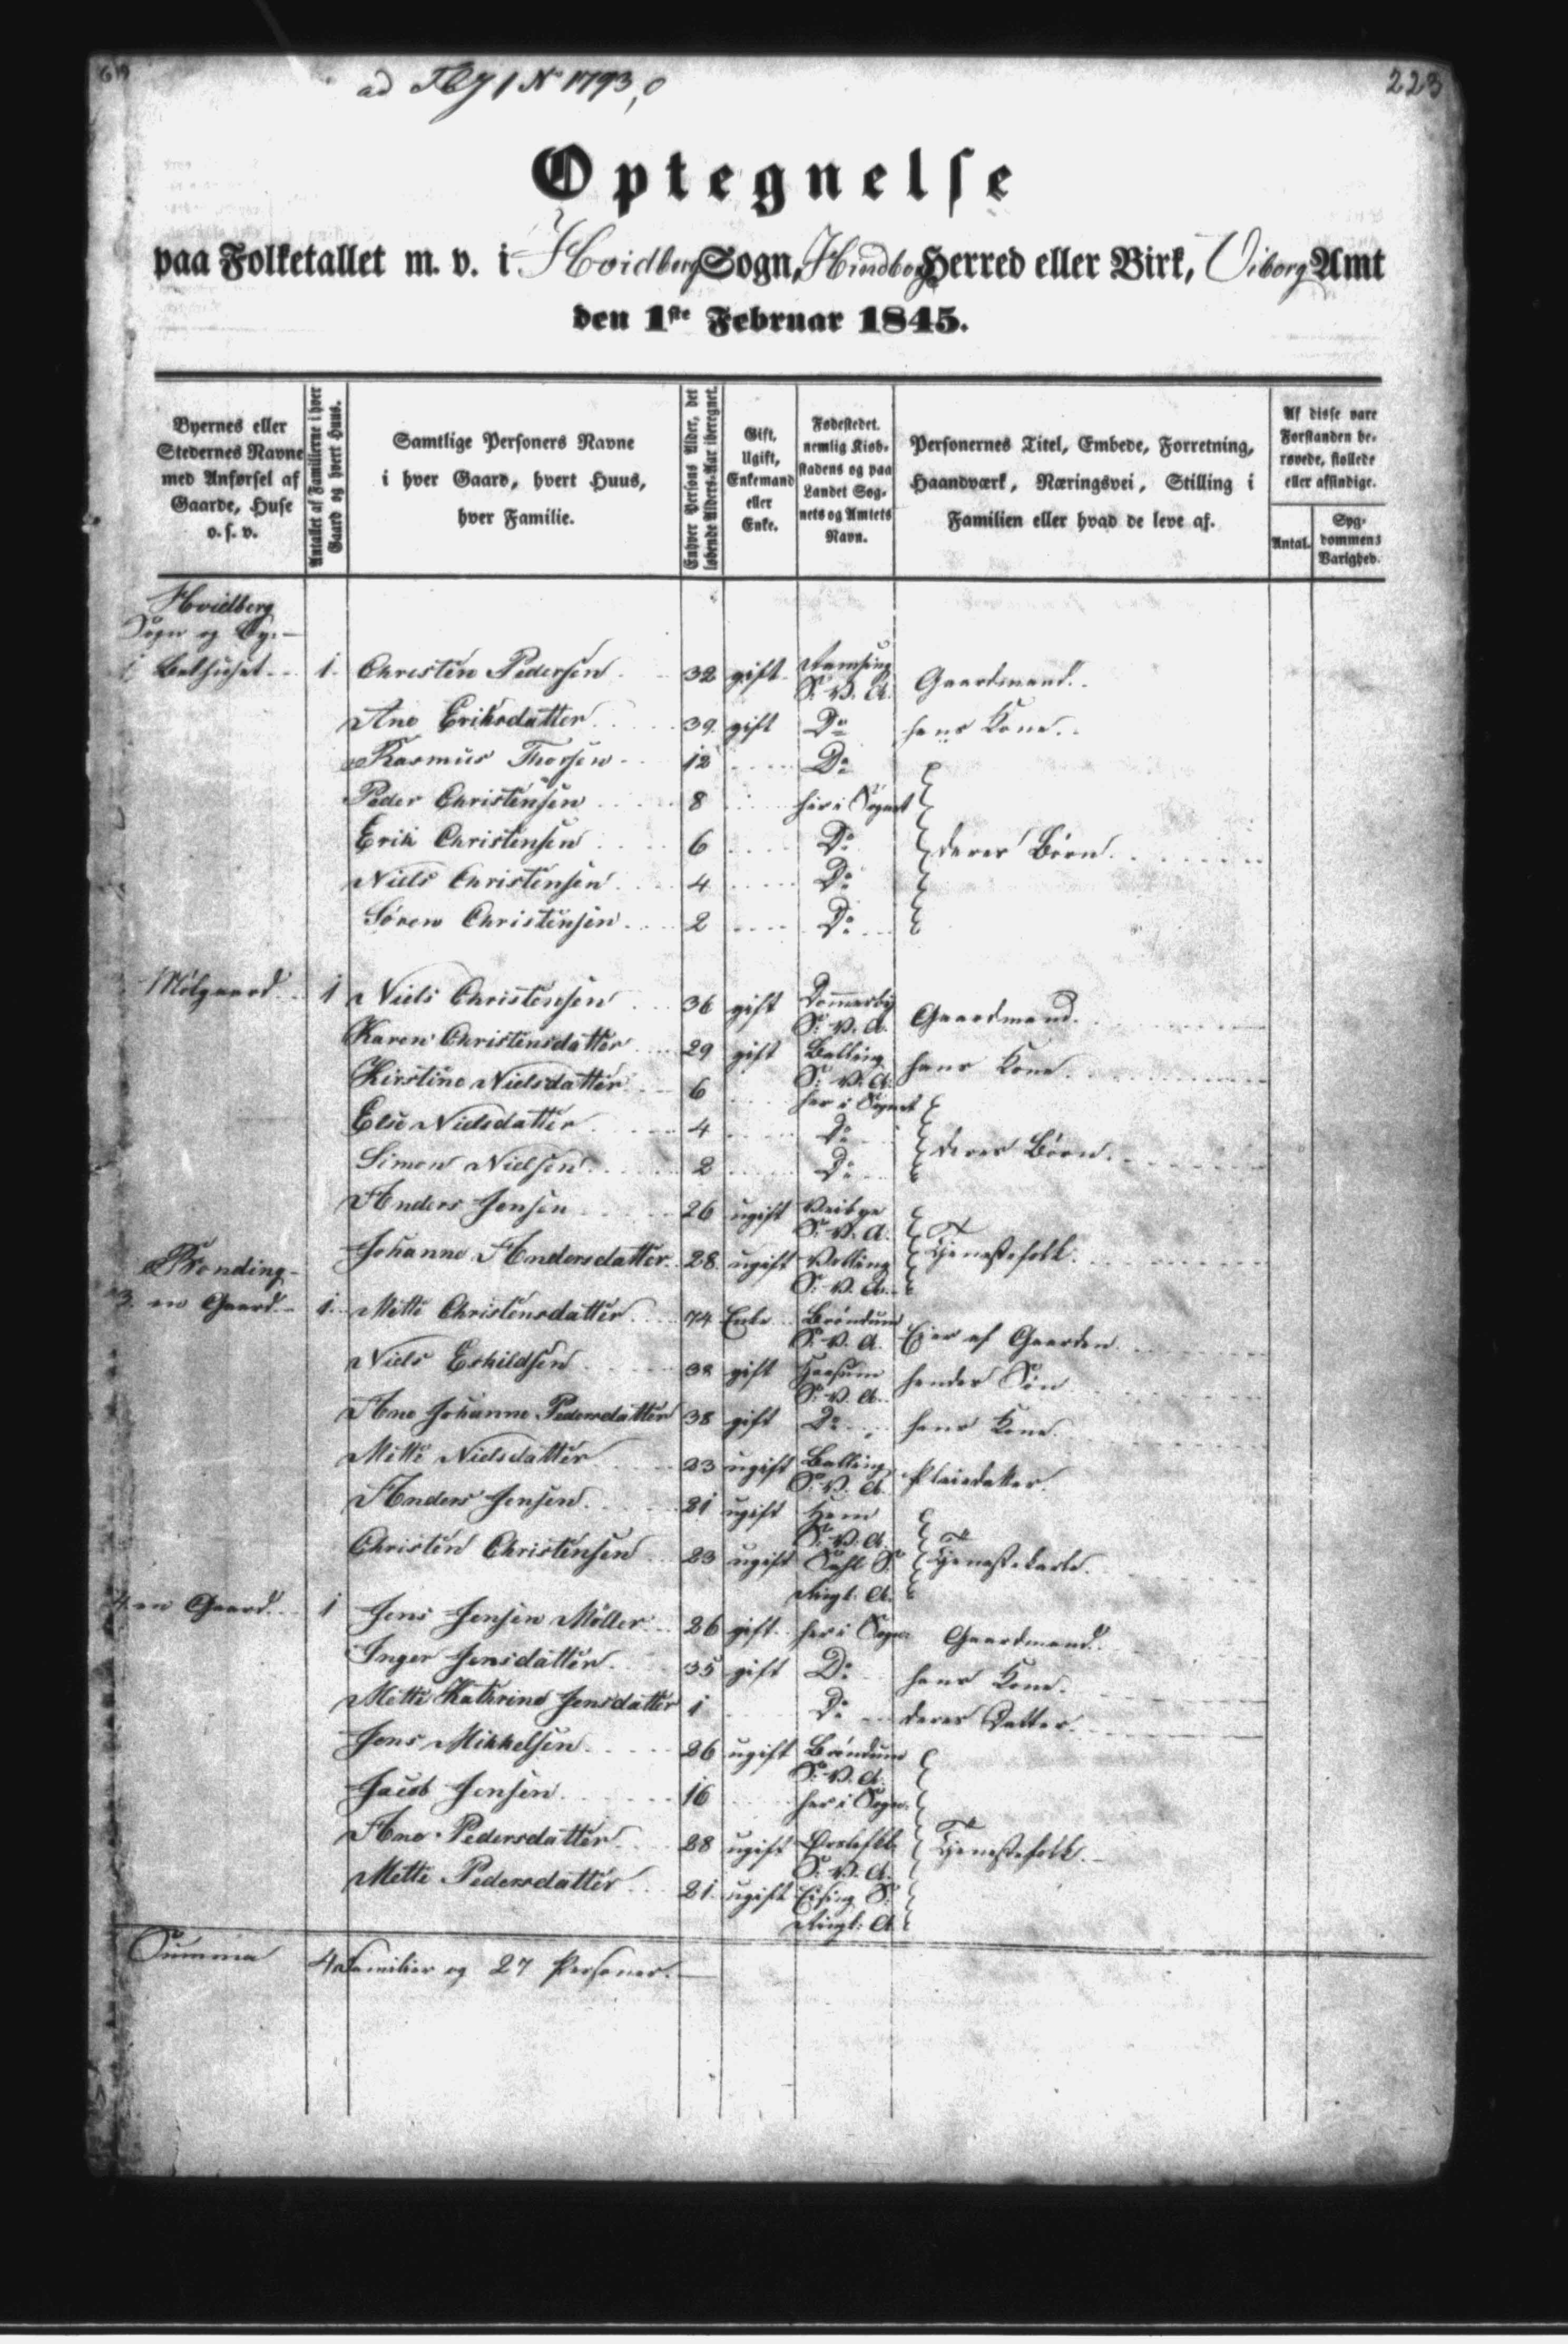 ad FCJ 1 No 1793,0
223
Optegnelse
paa Folketallet m. v. i Hvidberg Sogn, Hindborg Herred eller Birk, Viborg Amt
den 1ste Februar 1845.
Byernes eller Stedernes Navne med Anførsel af Gaarde, Huse o. s. v.
Antallet af Familierne i hver Gaard og hvert Huus.
Samtlige Personers Navne i hver Gaard, hvert Huus, hver Familie.
Enhver Persons Alder, det løbende Alders-Aar iberegnet.
Gift, Ugift, Enkemand eller Enke.
Fødestedet. nemlig Kiøbstadens og paa Landet Sognets og Amtets Navn.
Personernes Titel, Embede, Forretning, Haandværk, Næringsvei, Stilling i Familien eller hvad de leve af.
Af disse vare Forstanden berøvede, stollede eller afsindige.
Antal.
Sygdommens Varighed.
Hvidberg
Sogn og By.
1 1 Christen Pedersen 32 gift Ramsing S. V. A. Gaardmand.
Ane Eriksdatter 39 gift Do hans Kone.
Rasmus Thorsen 12 Do
Peder Christensen 8 her i Sognet
Erik Christensen 6 Do deres Børn.
Niels Christensen 4 Do
Søren Christensen 2 Do
Mølgaard 1 Niels Christensen 36 gift Dommerby S. V. A. Gaardmand.
Karen Christensdatter 29 gift Balling S. V. A. hans Kone.
Kirstine Nielsdatter 6 her i Sognet
Else Nielsdatter 4 Do deres Børn.
Simon Nielsen 2 Do
Anders Jensen 26 ugift Veibye S. V. A.
Johanne Andersdatter 28 ugift Volling S. V. A. Tjenestefolk.
Rønding
3. en Gaard 1 Mette Christensdatter 74 Enke Brøndum S. V. A. Ejer af Gaarden
Niels Eskildsen 38 gift Haasum S. V. A. hendes Søn
Ane Johanne Pedersdatter 38 gift Do hans Kone.
Mette Nielsdatter 23 ugift Balling S. V. A. Pleiedatter.
Anders Jensen 21 ugift Hem S. V. A.
Christen Christensen 23 ugift Sahl S. Ringk. A. Tjenestekarle.
4. en Gaard 1 Jens Jensen Møller 26 gift her i Sogn. Gaardmand.
Inger Jensdatter 35 gift Do hans Kone.
Mette Kathrine Jensdatter 1 Do deres Datter.
Jens Mikkelsen 26 ugift Brøndum S. V. A.
Jacob Jensen 16 her i Sogn.
Ane Pedersdatter 28 ugift Ørslefkl. S. V. A. Tjenestefolk.
Mette Pedersdatter 21 ugift Eising S. Ringk. A.
Summa 4 Familier og 27 Personer.